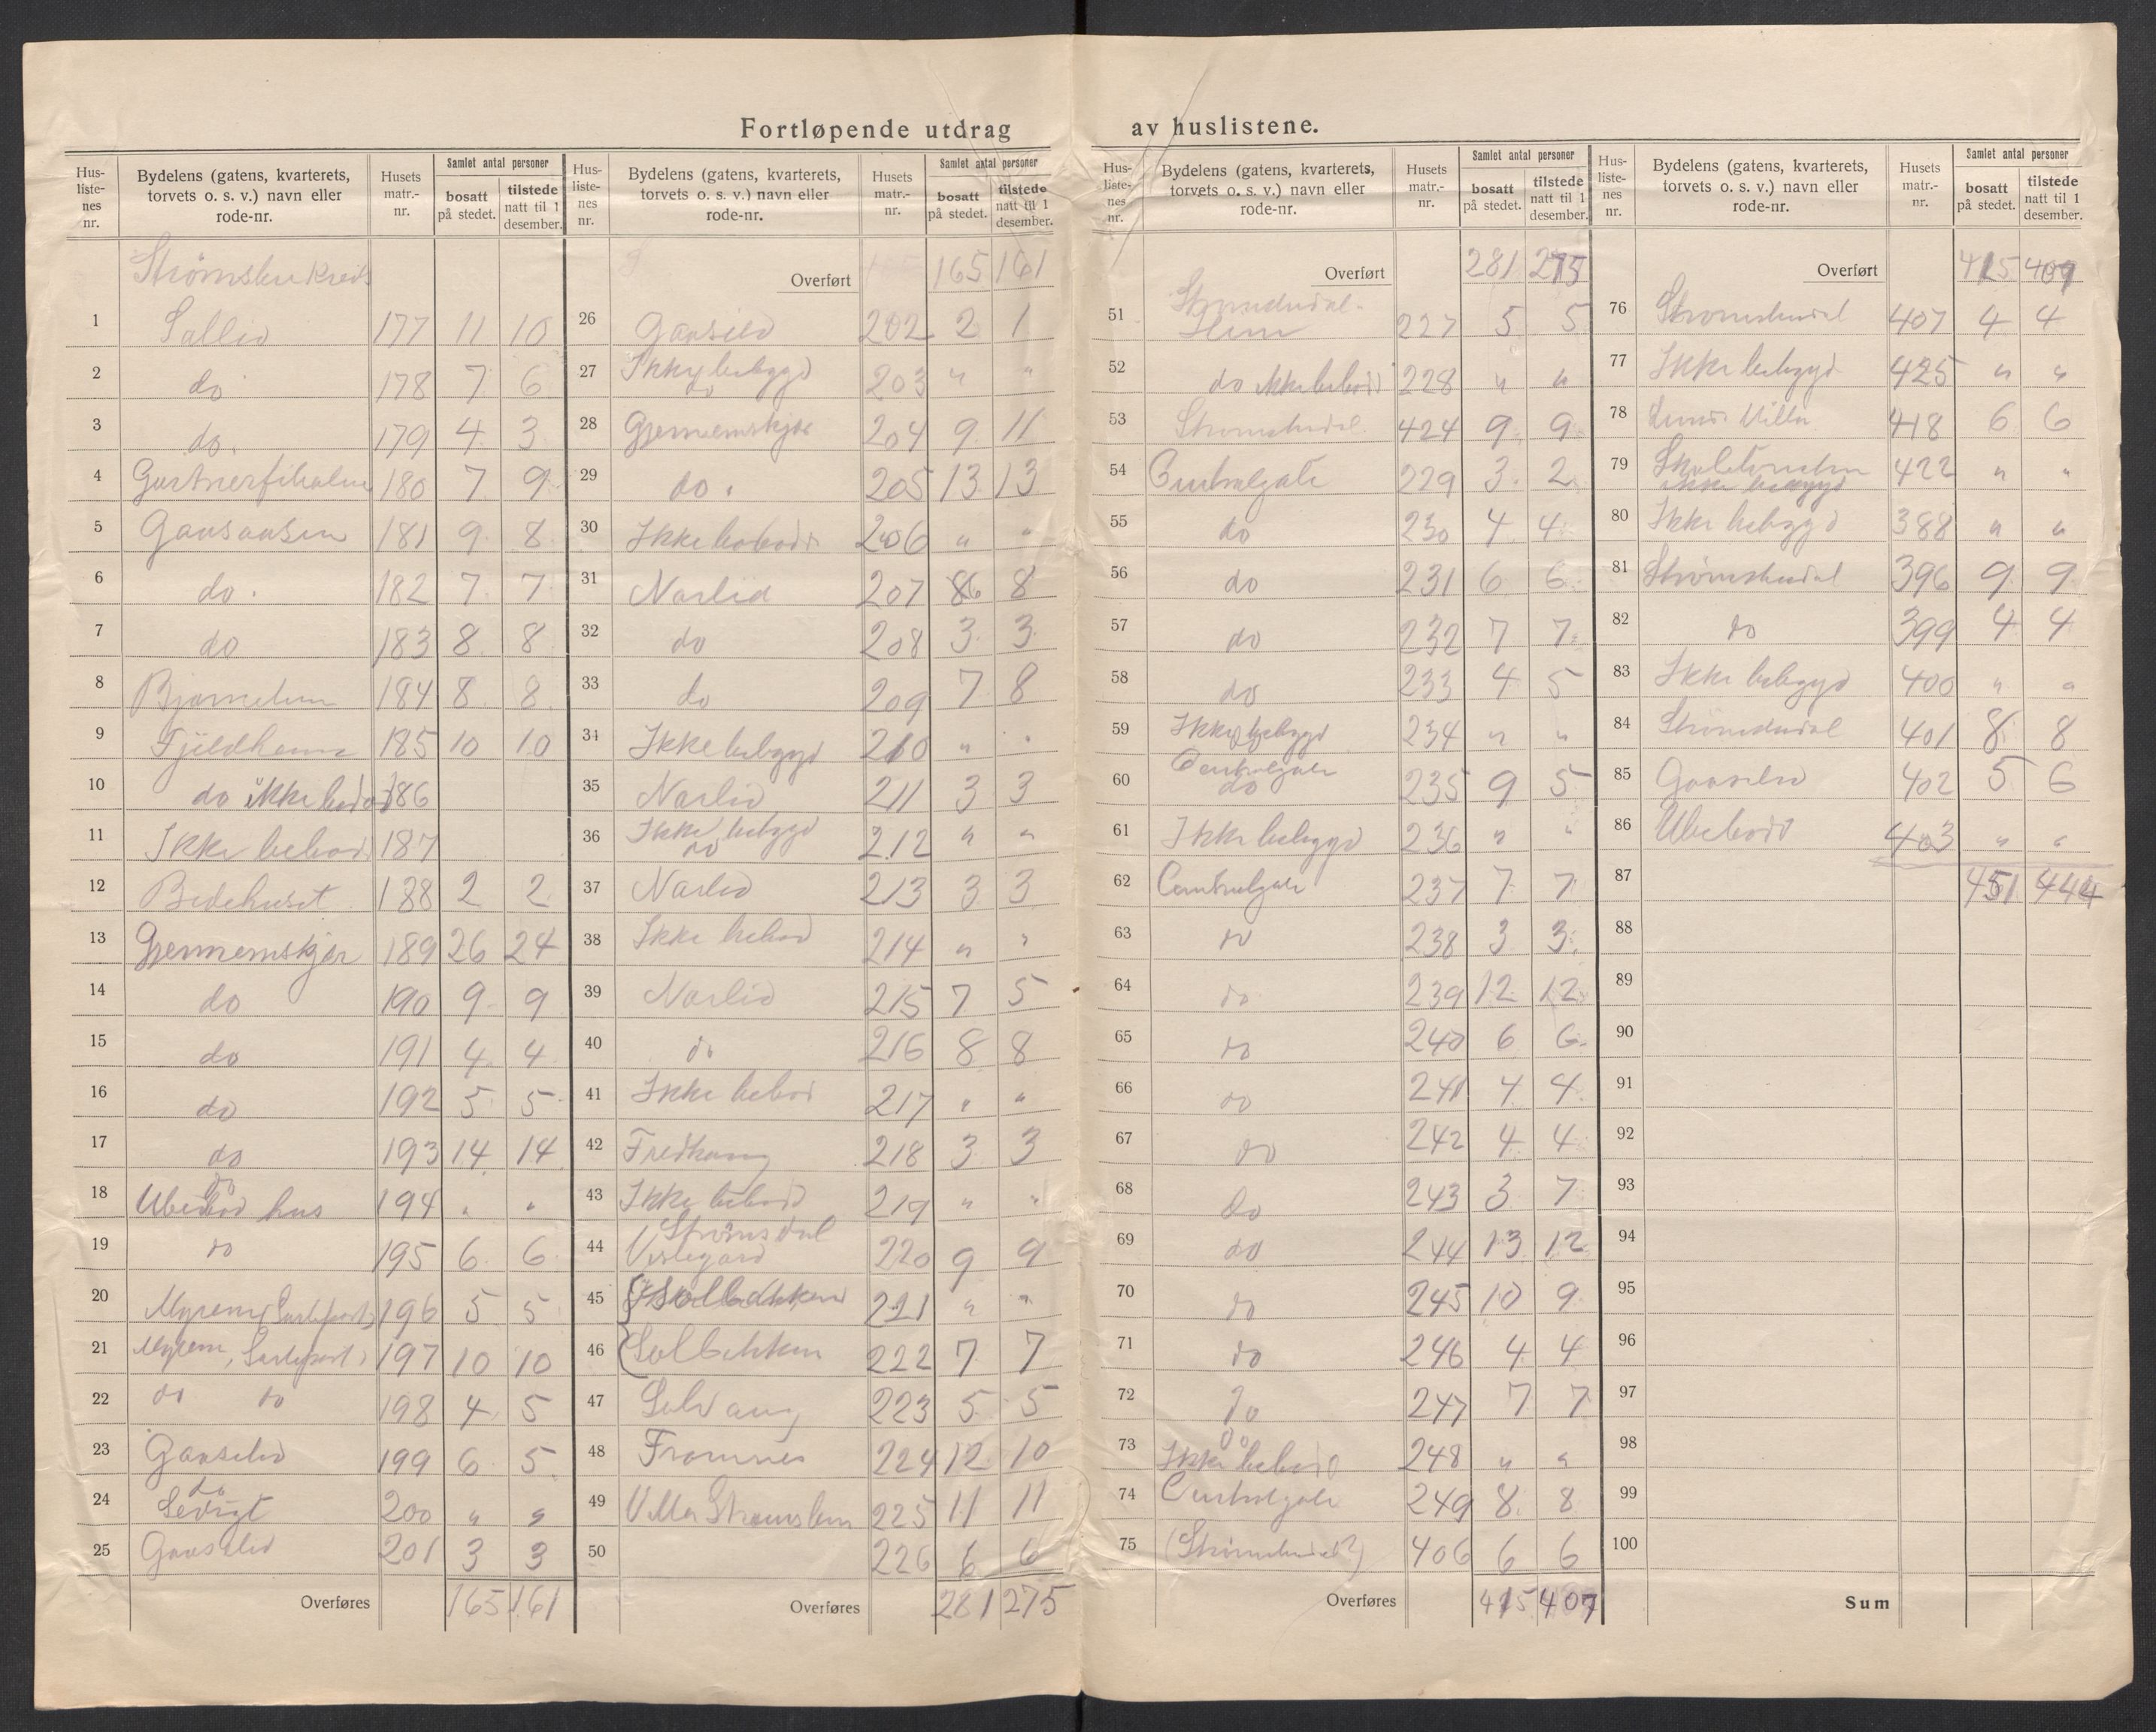 Fortløpende utdrag av huslistene.
Hus-liste-nes nr. Bydelens (gatens, kvarterets, torvets o. s. v.) navn eller rode-nr. Husets matr.-nr. Samlet antal personer bosatt på stedet. tilstede natt til 1 desember.
Strømsbu Kreds
1 Sollid 177 11 10
2 do 178 7 6
3 do. 179 4 3
4 Gartnerfiholmen 180 7 9
5 Gaasaasen 181 9 8
6 do. 182 7 7
7 do 183 8 8
8 184 8 8
9 Fjeldheim 185 10 10
10 do ikke bebod 186
11 Ikke bebod 187
12 Bedehuset 188 2 2
13 Gjennemskjær 189 26 24
14 do 190 9 9
15 do 191 4 4
16 do 192 5 5
17 do 193 14 14
18 do Ubebod hus 194 " "
19 do 195 6 6
20 Myrene 196 5 5
21 Myrene 197 10 10
22 do do 198 4 5
23 Gaaselid 199 6 5
24 do Ledigt 200 " "
25 Gaaselid 201 3 3
Overføres 165 161
Hus-liste-nes nr. Bydelens (gatens, kvarterets, torvets o. s. v.) navn eller rode-nr. Husets matr.-nr. Samlet antal personer bosatt på stedet. tilstede natt til 1 desember.
Overført 165 161
26 Gaaselid 202 2 1
27 Ikke bebygd do 203 " "
28 Gjennemskjær 204 9 11
29 do. 205 13 13
30 Ikke bebodd 206 " "
31 Narlid 207 8
32 do 208 3 3
33 do 209 7 8
34 Ikke bebygd 210 " "
35 Narlid 211 3 3
36 Ikke bebygd do 212 " "
37 Narlid 213 3 3
38 Ikke bebod 214 " "
39 Narlid 215 7 5
40 do 216 8 8
41 Ikke bebod 217 " "
42 Fredhaug 218 3 3
43 Ikke bebod 219 " "
44 Strømsdal Vestegard 220 9 9
45 Solbakken 221 " "
46 Solbakken 222 7 7
47 Solvang 223 5 5
48 Fromnes 224 12 10
49 Villa Strømsbu 225 11 11
50 226 6 6
Overføres 281 275
Hus-liste-nes nr. Bydelens (gatens, kvarterets, torvets o. s. v.) navn eller rode-nr. Husets matr.-nr. Samlet antal personer bosatt på stedet. tilstede natt til 1 desember.
Overført 281 275
51 227 5 5
52 do ikke bebod 228 " "
53 Strømsbudal 424 9 9
54 Centralgate 229 3 2
55 do 230 4 4
56 do 231 6 6
57 do 232 7 7
58 do 233 4 5
59 Ikke bebygd 234 " "
60 Centralgate do 235 9 5
61 Ikke bebygd 236 " "
62 Centralgate 237 7 7
63 do 238 3 3
64 do 239 12 12
65 do 240 6 6
66 do 241 4 4
67 do 242 4 4
68 do 243 3 7
69 do 244 13 12
70 do 245 10 9
71 do 246 4 4
72 do 247 7 7
73 do Ikke bebod 248 " "
74 Centralgate 249 8 8
75 (Strømsbudal?) 406 6 6
Overføres 415 407
Hus-liste-nes nr. Bydelens (gatens, kvarterets, torvets o. s. v.) navn eller rode-nr. Husets matr.-nr. Samlet antal personer bosatt på stedet. tilstede natt til 1 desember.
Overført 415 407
76 Strømsbudal 407 4 4
77 Ikke bebygd 425 " "
78 Villa 418 6 6
79 Skoletomten ikke bebygd 422 " "
80 Ikke bebygd 388 " "
81 Strømsbudal 396 9 9
82 do 399 4 4
83 Ikke bebygd 400 " "
84 Strømsbudal 401 8 8
85 Gaaselid 402 5 6
86 Ubebodd 403 " "
87 451 444
88
89
90
91
92
93
94
95
96
97
98
99
100
Sum